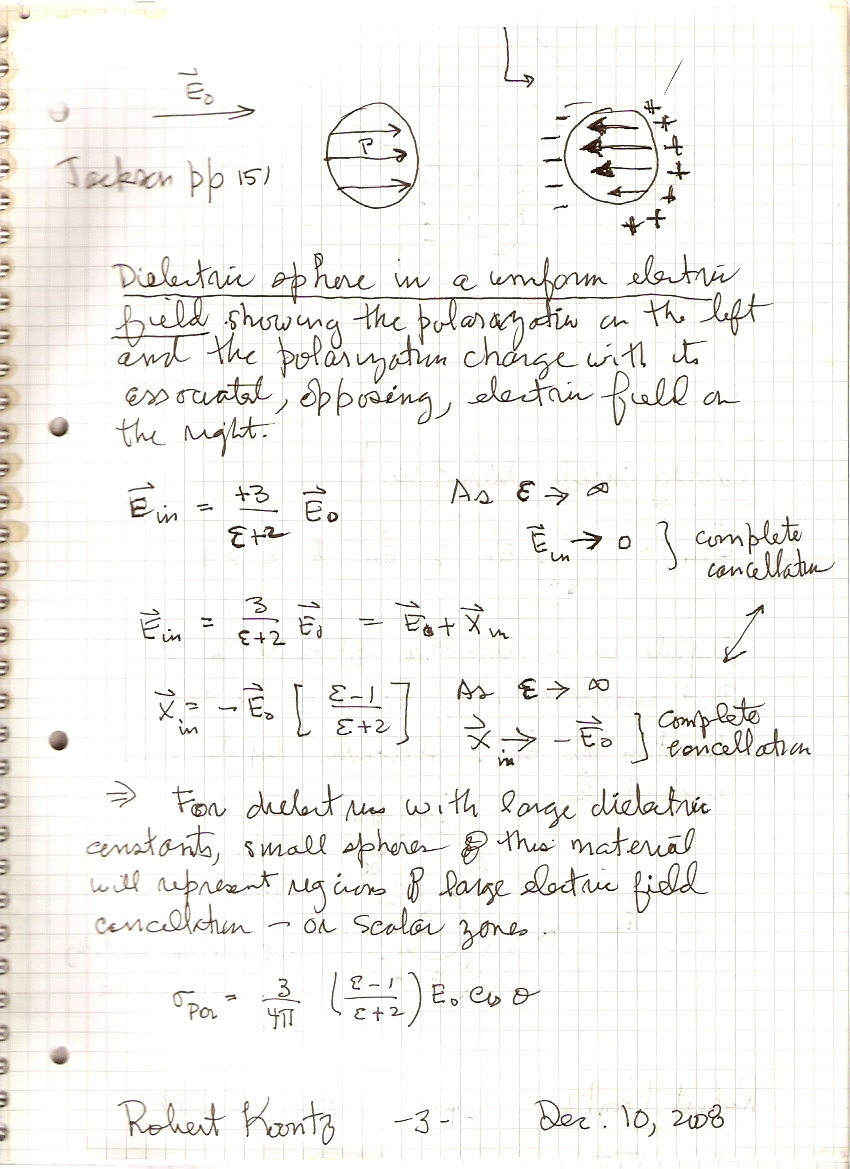 E⃗₀
Jackson pp 151
P
Dielectric sphere in a uniform electric
field showing the polarization on the left
and the polarization charge with its
associated, opposing, electric field on
the right.
E⃗in = +3/(ε+2) E⃗₀ As ε → ∞
E⃗in → 0 } complete
cancellation
E⃗in = 3/(ε+2) E⃗₀ = E⃗₀ + X⃗in
X⃗in = - E⃗₀ [ (ε-1)/(ε+2) ] As ε → ∞
X⃗in → - E⃗₀ } complete
cancellation
⇒ For dielectrics with large dielectric
constants, small spheres of this material
will represent regions of large electric field
cancellation - or scalar zones.
σpol = 3/4π ( (ε-1)/(ε+2) ) E₀ cos θ
Robert Koontz -3- Dec. 10, 2008